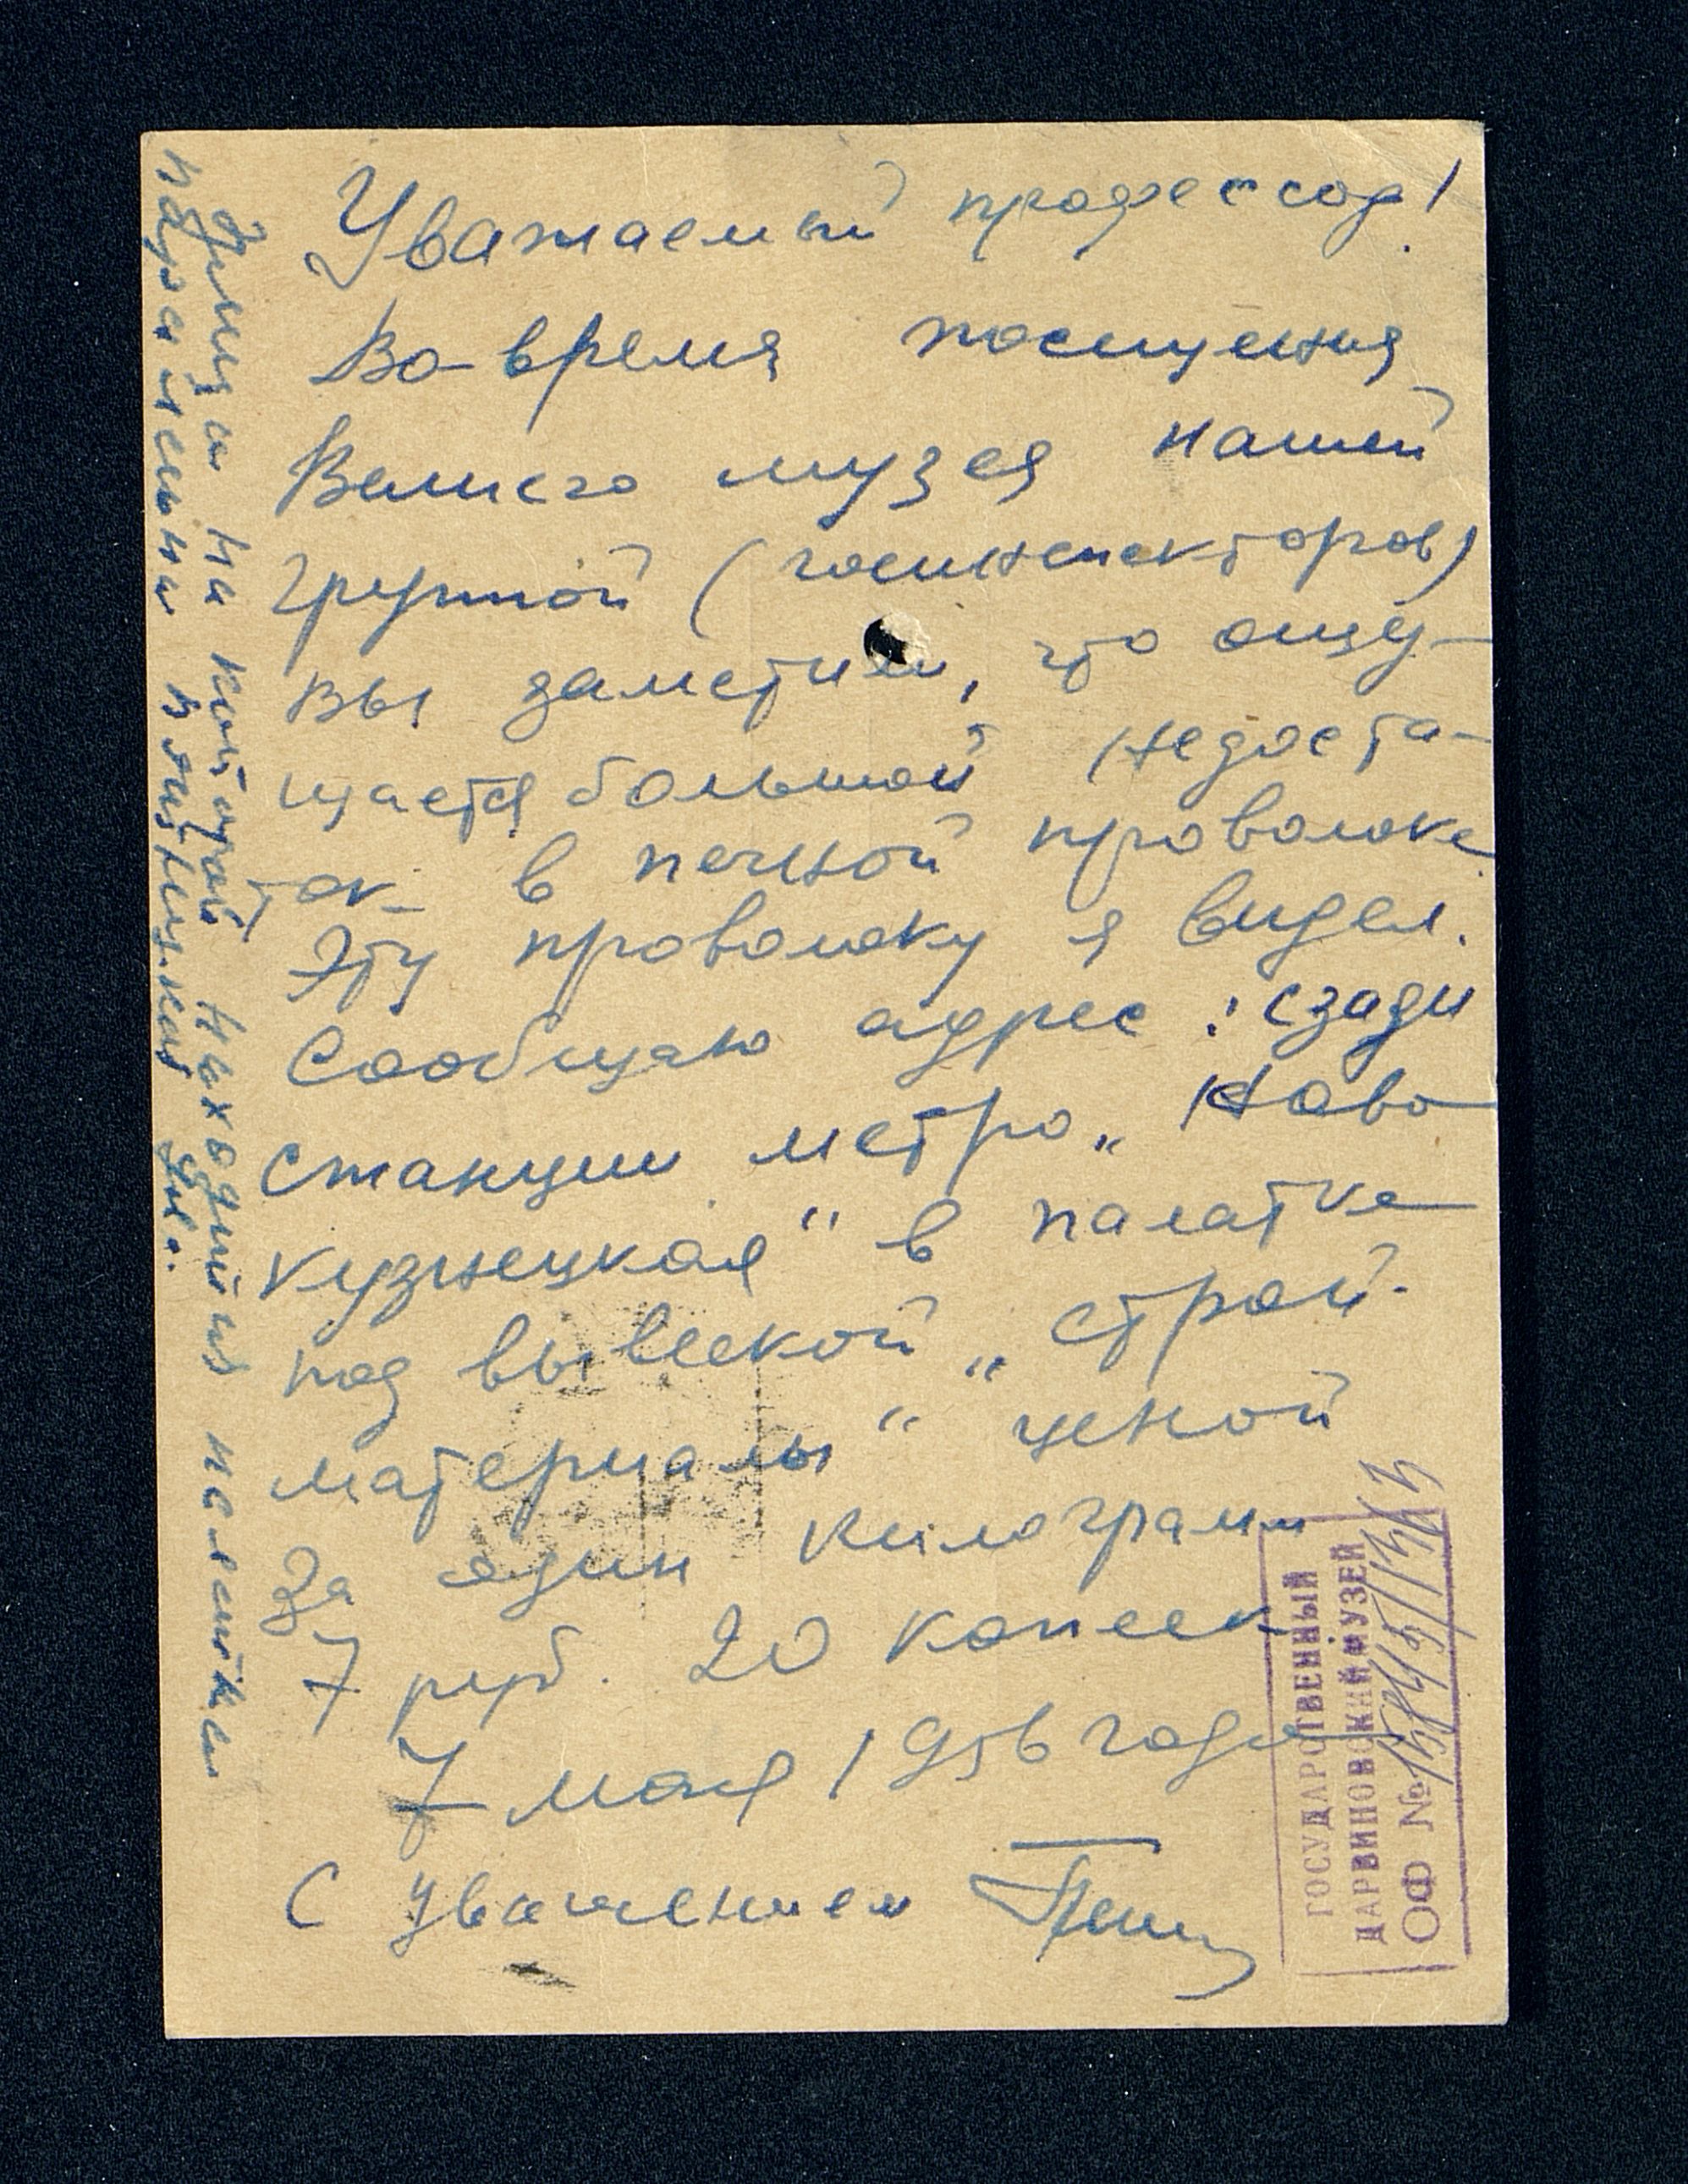 Уважаемый профессор!
Во время посещения
Вашего музея нашей
группой (госинспекторов)
вы заметили, что ощу-
щается большой недоста-
ток в печной проволоке
Эту проволоку я видел.
Сообщаю адрес: сзади
станции метро „Ново
кузнецкая" в палатке
под вывеской „Строй-
материалы" ценой
за один килограмм
7 руб. 20 копеек
7 мая 1956 года
С уважением
улица на которой находится палатка
параллельна Пятницкой ул.
ГОСУДАРСТВЕННЫЙ
ДАРВИНОВСКИЙ МУЗЕЙ
ОФ №